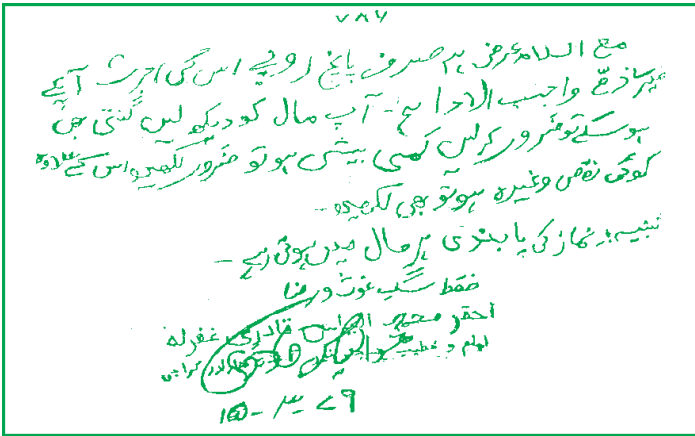 ۷۸۶
مع السلام عرض ہے صرف پانچ روپے اس کی اجرت آپکے
میرے ذمّے واجب الادا ہے۔ آپ مال کو دیکھ لیں گنتی بھی
ہو سکے تو ضرور کر لیں کمی بیشی ہو تو ضرور لکھیں اس کے علاوہ
کوئی نقص وغیرہ ہو تو بھی لکھیں۔
تنبیہ: نماز کی پابندی ہر حال میں ہوتی رہے۔
فقط سگِ غوث و رضا
احقر محمد الیاس قادری غفرلہ
امام و خطیب کراچی
۱۵-۳-۷۹